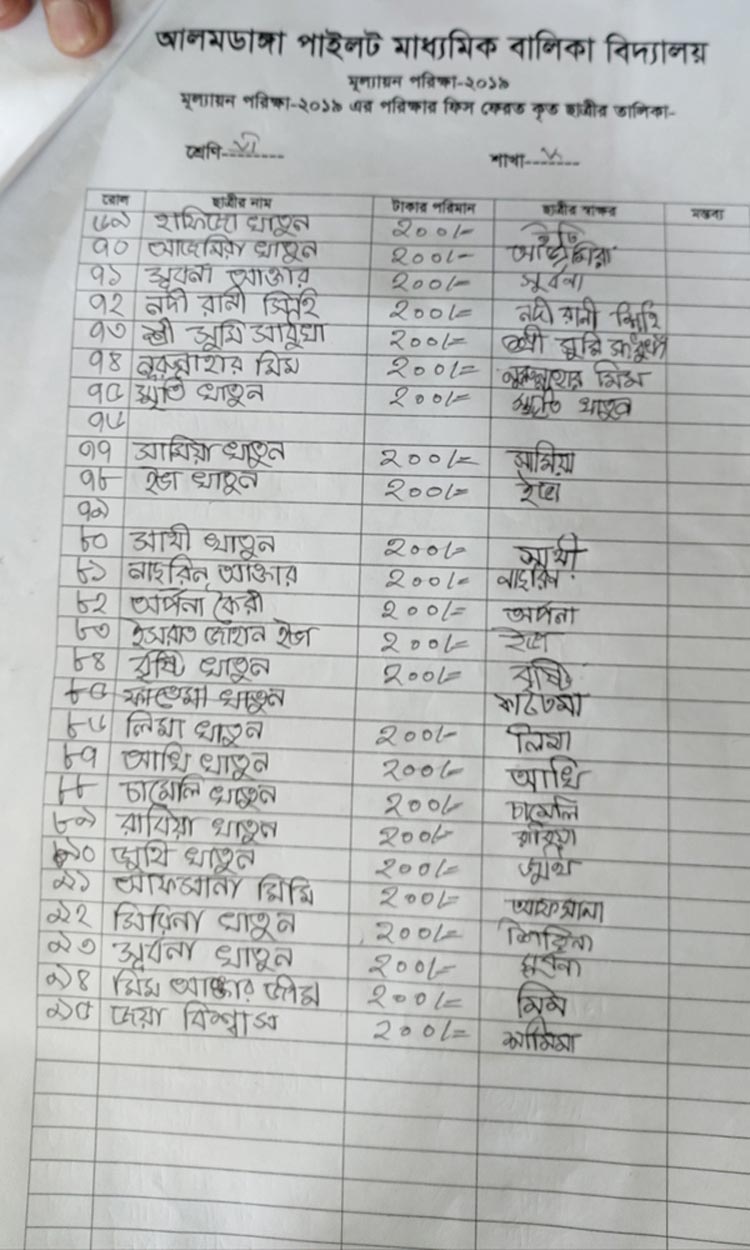 আলমডাঙ্গা পাইলট মাধ্যমিক বালিকা বিদ্যালয়
মূল্যায়ন পরিক্ষা-২০১৯
মূল্যায়ন পরিক্ষা-২০১৯ এর পরিক্ষার ফিস ফেরত কৃত ছাত্রীর তালিকা-
শ্রেণি-VI শাখা-
রোল ছাত্রীর নাম টাকার পরিমান ছাত্রীর স্বাক্ষর মন্তব্য
৬৯ হাফিজা খাতুন ২০০/-
৭০ খাতুন ২০০/-
৭১ সুবর্না আক্তার ২০০/= সুর্বনা
৭২ নদী রানী সিংহ ২০০/= নদী রানী সিংহ
৭৩ শ্রী সুমি সাধুখা ২০০/= শ্রী সুমি সাধুখা
৭৪ নুরুন্নাহার মিম ২০০/= নুরুন্নাহার মিম
৭৫ স্মৃতি খাতুন ২০০/= স্মৃতি খাতুন
৭৬
৭৭ সামিয়া খাতুন ২০০/= সামিয়া
৭৮ ইভা খাতুন ২০০/= ইভা
৭৯
৮০ সাথী খাতুন ২০০/= সাথী
৮১ নাছরিন আক্তার ২০০/= নাছরিন
৮২ অর্পনা কৈরী ২০০/= অর্পনা
৮৩ ইসরাত জাহান ইভা ২০০/= ইভা
৮৪ বৃষ্টি খাতুন ২০০/= বৃষ্টি
৮৫ ফাতেমা খাতুন ফাতেমা
৮৬ লিমা খাতুন ২০০/- লিমা
৮৭ আখি খাতুন ২০০/- আখি
৮৮ চামেলি খাতুন ২০০/- চামেলি
৮৯ রাবিয়া খাতুন ২০০/- রাবিয়া
৯০ জুথি খাতুন ২০০/= জুথি
৯১ আফসানা মিমি ২০০/= আফসানা
৯২ খাতুন ২০০/=
৯৩ সুবর্না খাতুন ২০০/= সুর্বনা
৯৪ মিম আক্তার ২০০/= মিম
৯৫ জয়া বিশ্বাস ২০০/=